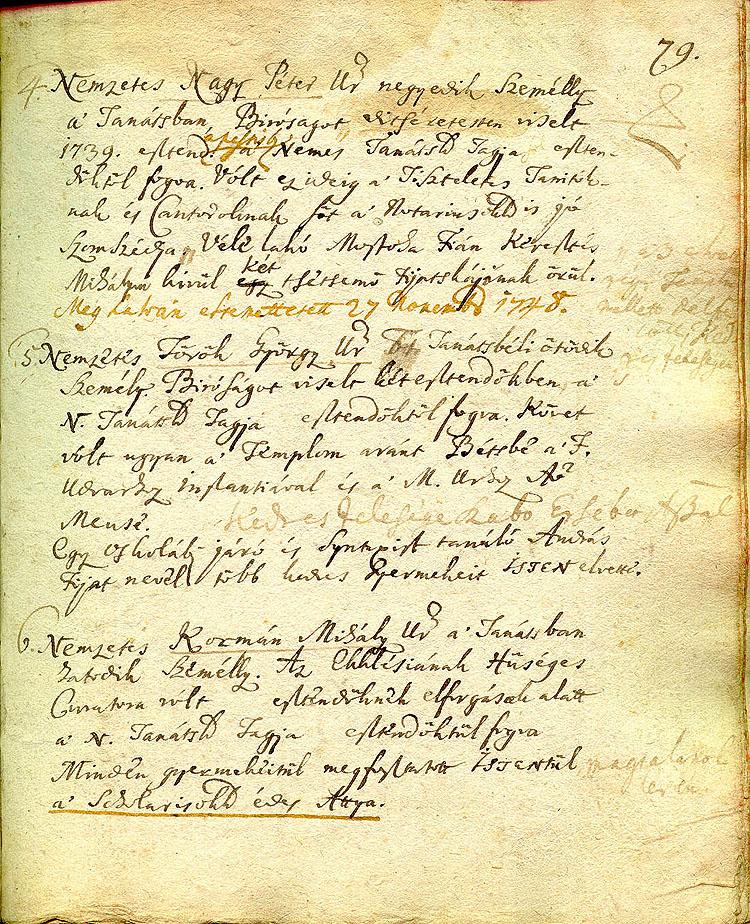 79.
4. Nemzetes Nagy Péter Ur negyedik Személly
a' Tanátsban, Biróságot ditséretessen viselt
1739. esztend. a' Nemes Tanáts Tagja eszten-
dőktől fogva. Vólt ez ideig a' Tiszteletes Tanitók-
nak és Cantoroknak sőt a' Notariusok is jó
Szomszédja, Véle lakó Mostoha Fián Keresztes
Mihályon kivül két egy tsetsemő Fijatskájának örül.
27 Novemb 1748.
5. Nemzetes Török György Ur Tanátsbéli ötödik
Személy. Biróságot viselt két esztendőkben, a'
N. Tanáts Tagja esztendőktől fogva. Követ
vólt ugyan a' Templom aránt Bétsbe a' F.
Udvarhoz Instantiával és a' M. Urhoz
Egy Oskoláb járó és Syntaxist tanúló András
Fijat nevel, több kedves Gyermekeit ISTEN elvette.
6. Nemzetes Kormán Mihály Ur a' Tanátsban
hatodik Személly. Az Ekklésiának Hűséges
Curatora vólt esztendőknek elforgások alatt
a' N. Tanáts Tagja esztendőktül fogva
Minden gyermekeitül megfosztatott ISTENtül
a' Scholarisok édes Attya.